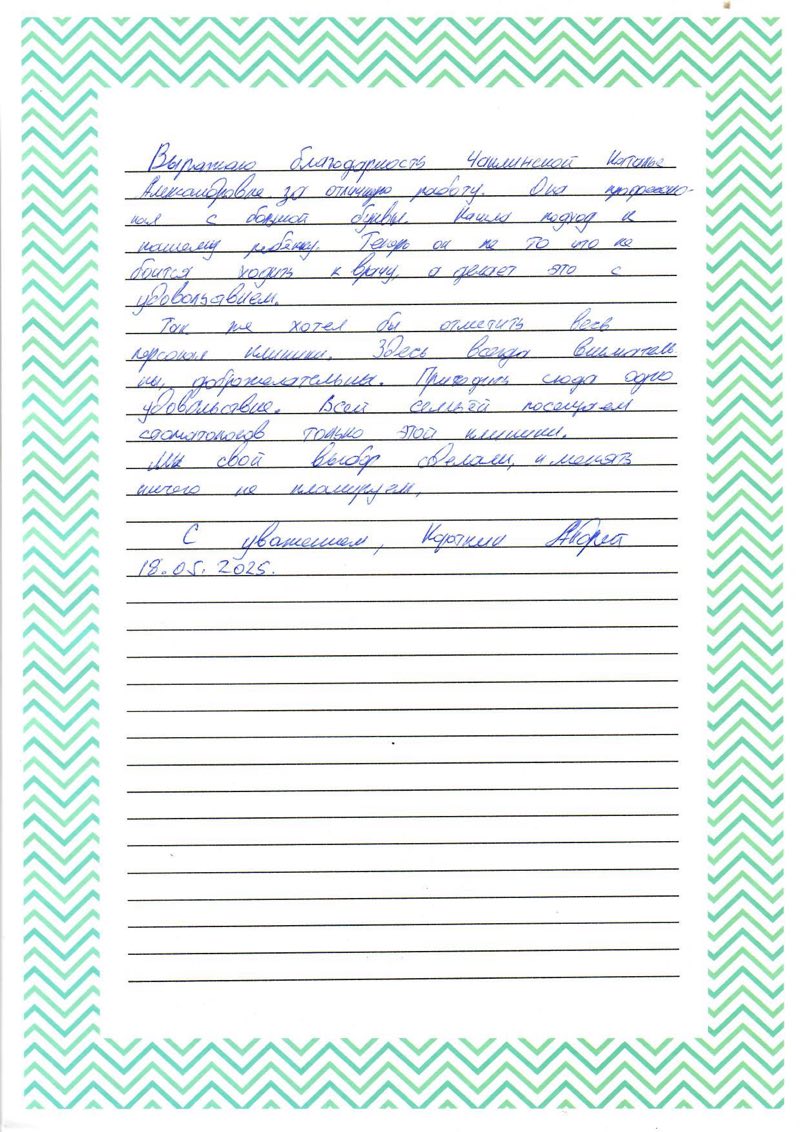 Выражаю благодарность Чаплинской Наталье
Александровне за отличную работу. Она професио-
нал с большой буквы. Нашла подход к
нашему ребёнку. Теперь он не то что не
боится ходить к врачу, а делает это с
удовольствием.
Так же хотел бы отметить весь
персонал клиники. Здесь всегда вниматель
ны, доброжелательны. Приходить сюда одно
удовольствие. Всей семьёй посещаем
стоматологов только этой клиники.
Мы свой выбор сделали, и менять
ничего не планируем,
С уважением, Андрей
18.05.2025.